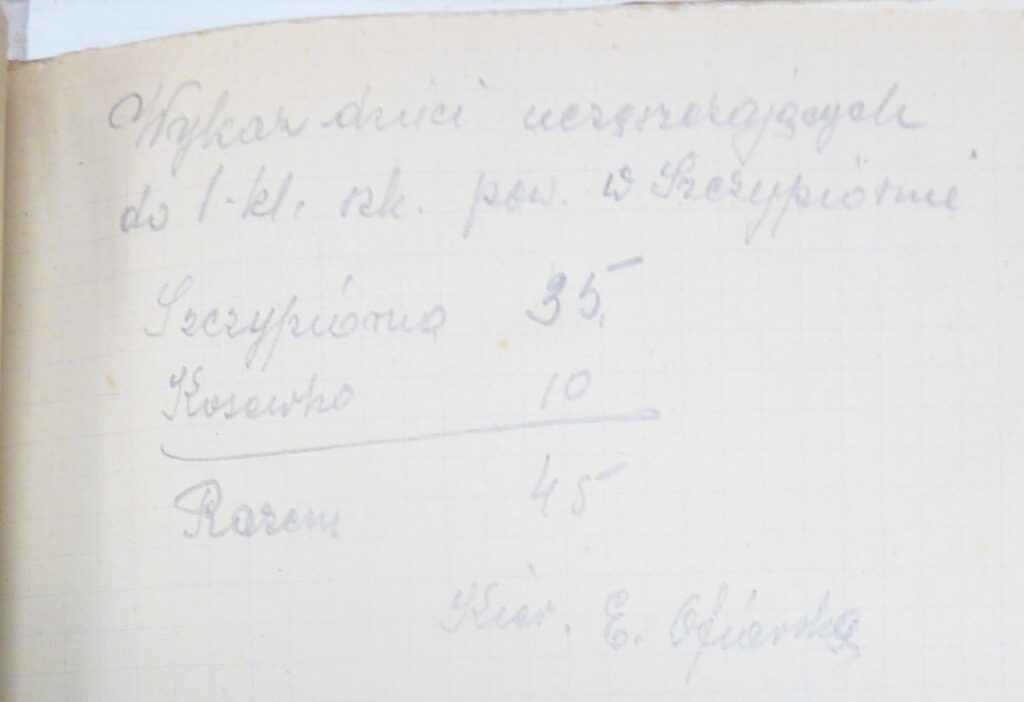 Wykaz dzieci uczęszczających
do 1. kl. szk. pow. w Szczypiórnie
Szczypiórno 35
Kosewko 10
Razem 45
Kier. E. Ofiarska